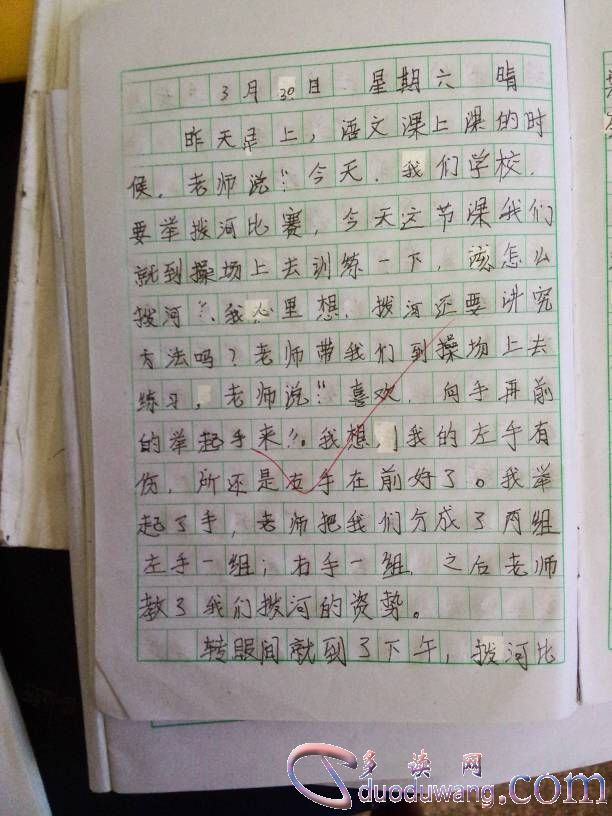 3月30日 星期六 晴
昨天早上，语文课上课的时
候，老师说“今天，我们学校，
要举拨河比赛，今天这节课我们
就到操场上去训练一下，该怎么
拨河”，我心里想，拨河还要讲究
方法吗？老师带我们到操场上去
练习，老师说“喜欢，向手再前
的举起手来”。我想，我的左手有
伤，所还是右手在前好了。我举
起了手，老师把我们分成了两组
左手一组；右手一组，之后老师
教了我们拨河的资势。
转眼间就到了下午，拨河比
多读网
duoduwang.com